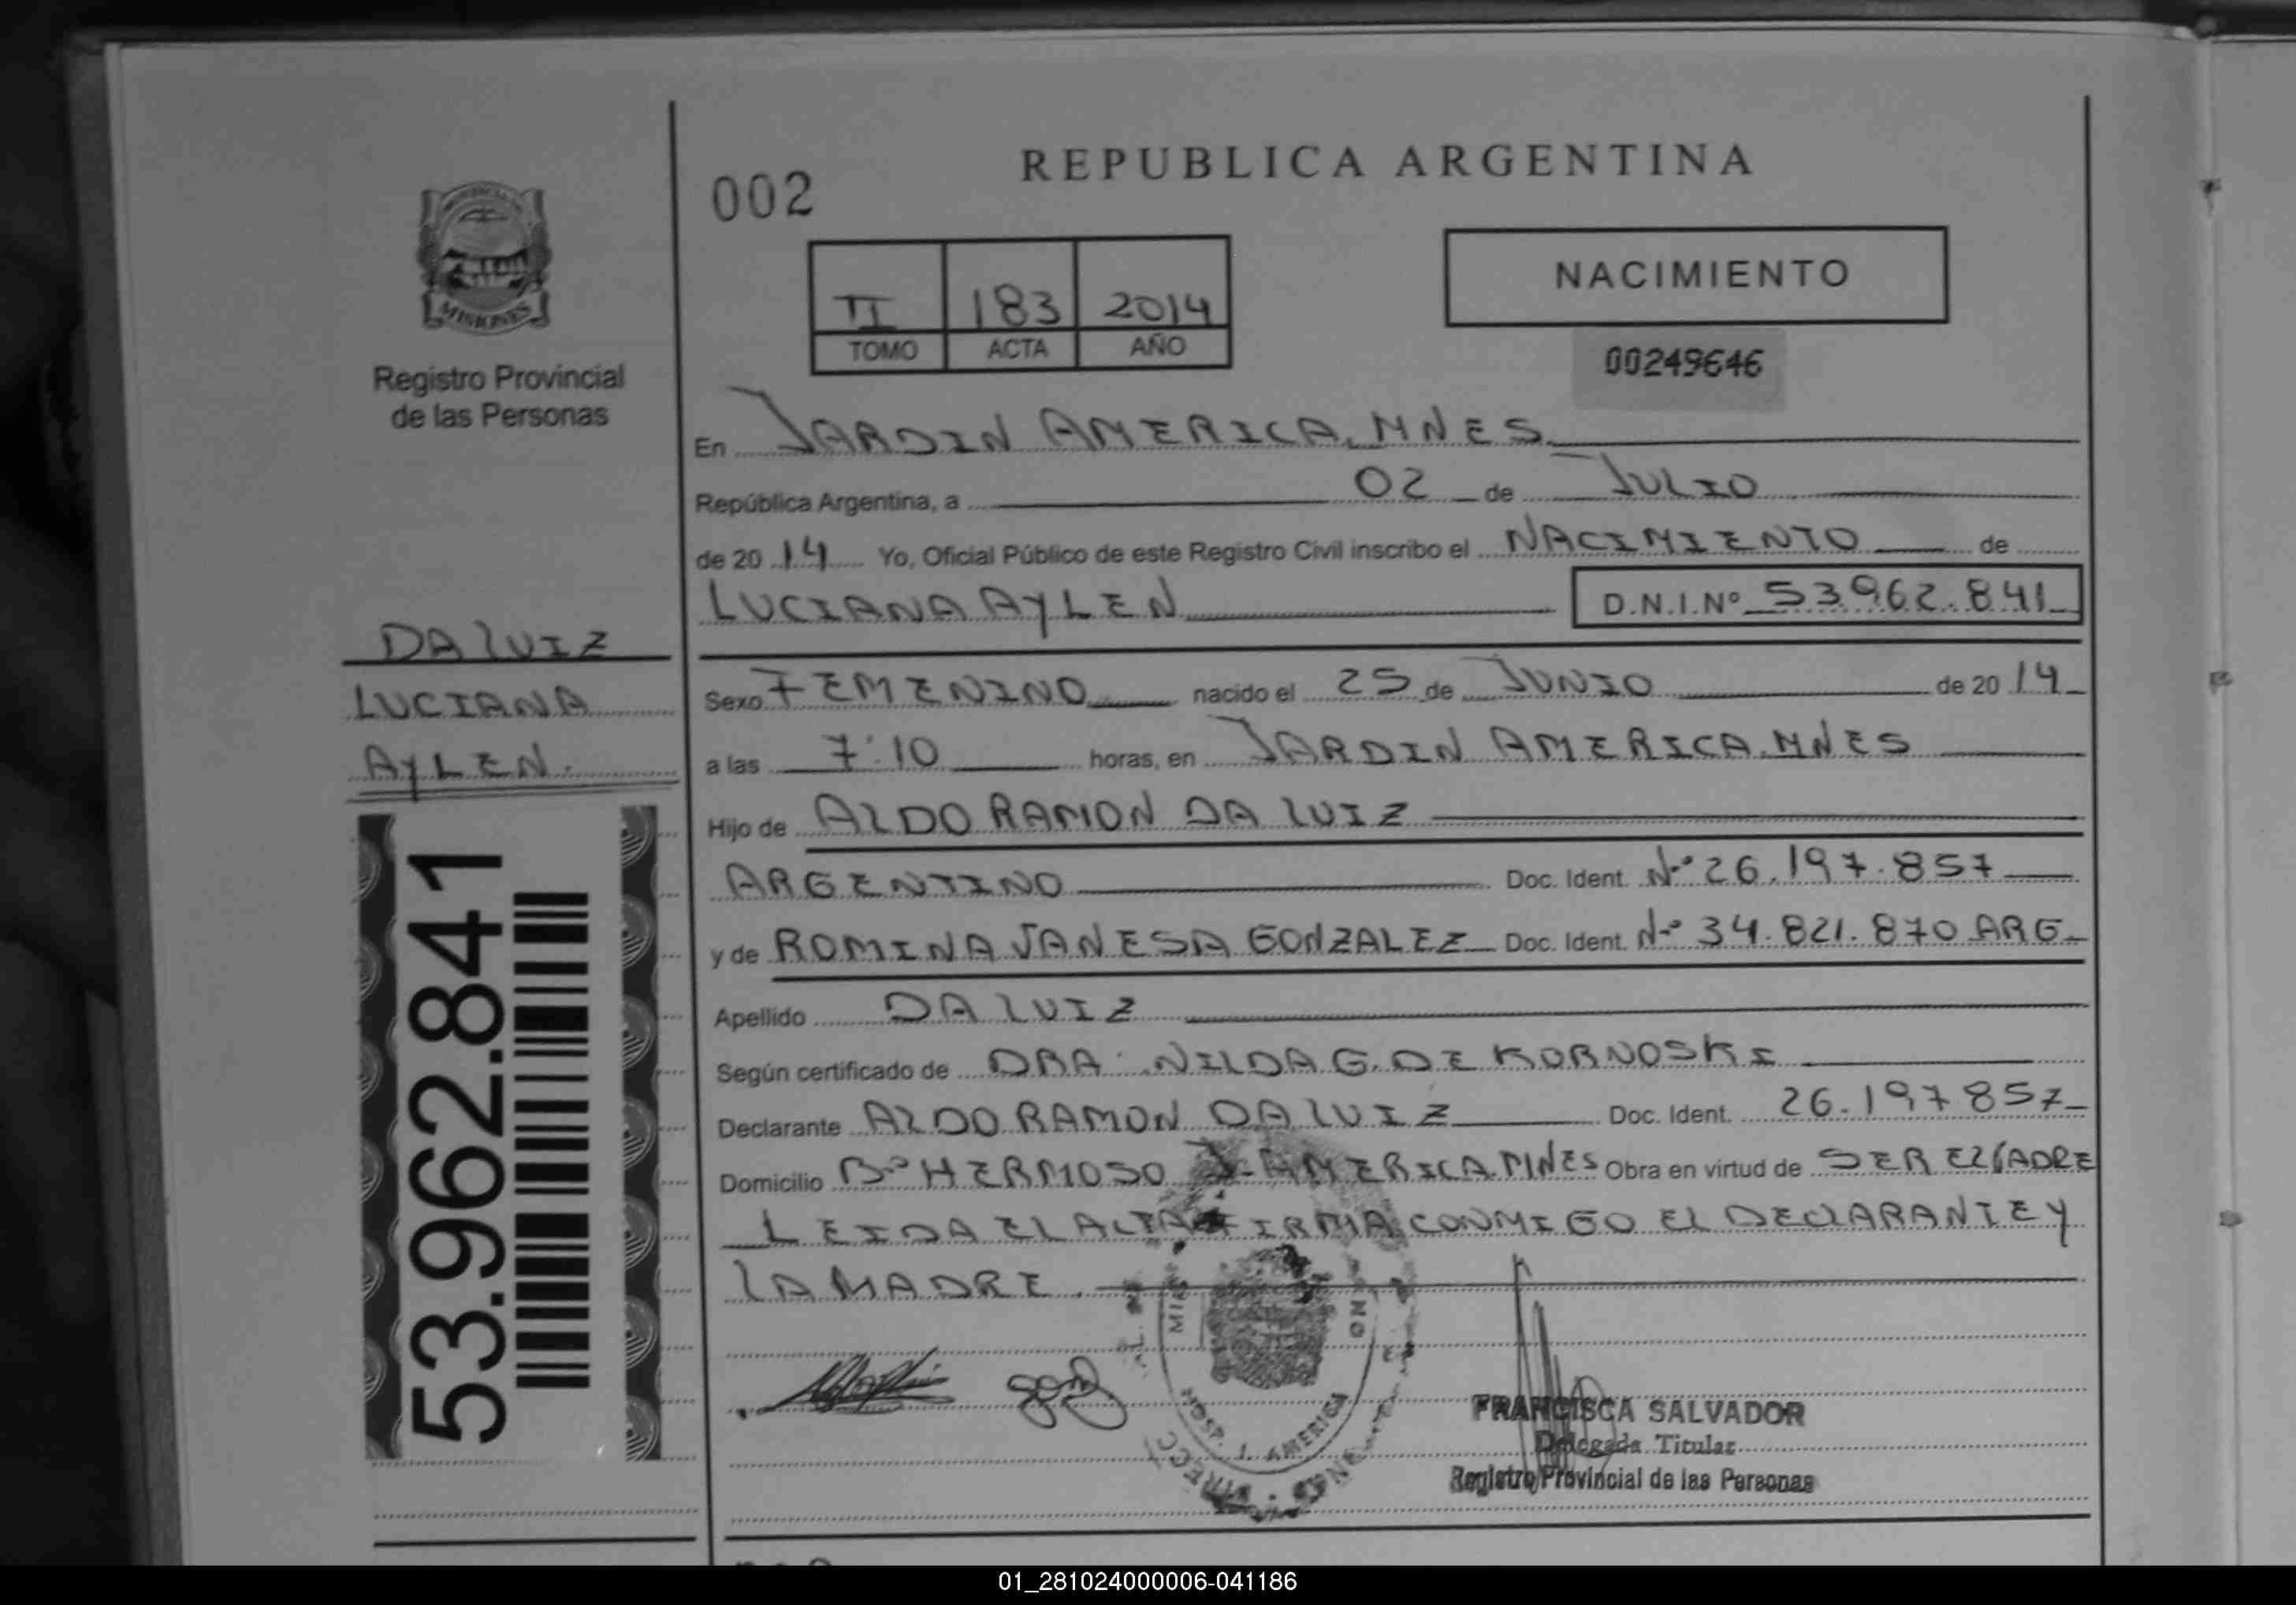 REPUBLICA ARGENTINA
002
MISIONES
Registro Provincial
de las Personas
II 183 2014
TOMO ACTA AÑO
NACIMIENTO
00249646
En JARDIN AMERICA, MNES
República Argentina, a 02 de JULIO
de 2014 Yo, Oficial Público de este Registro Civil inscribo el NACIMIENTO de
LUCIANA AYLEN D.N.I.Nº 53.962.841
DA LUIZ
LUCIANA
AYLEN.
53.962.841
Sexo FEMENINO nacido el 25 de JUNIO de 2014
a las 7:10 horas, en JARDIN AMERICA. MNES
Hijo de ALDO RAMON DA LUIZ
ARGENTINO Doc. Ident. Nº 26.197.857
y de ROMINA VANESA GONZALEZ Doc. Ident. Nº 34.821.870 ARG.
Apellido DA LUIZ
Según certificado de DRA. NILDA G. DE KORNOSKI
Declarante ALDO RAMON DA LUIZ Doc. Ident. 26.197857
Domicilio Bº HERMOSO J. AMERICA. MNES Obra en virtud de SER EL PADRE
LEIDA EL ACTA FIRMA CONMIGO EL DECLARANTE Y
LA MADRE.
HOSP. J. AMERICA
FRANCISCA SALVADOR
Delegada Titular
Registro Provincial de las Personas
01_281024000006-041186